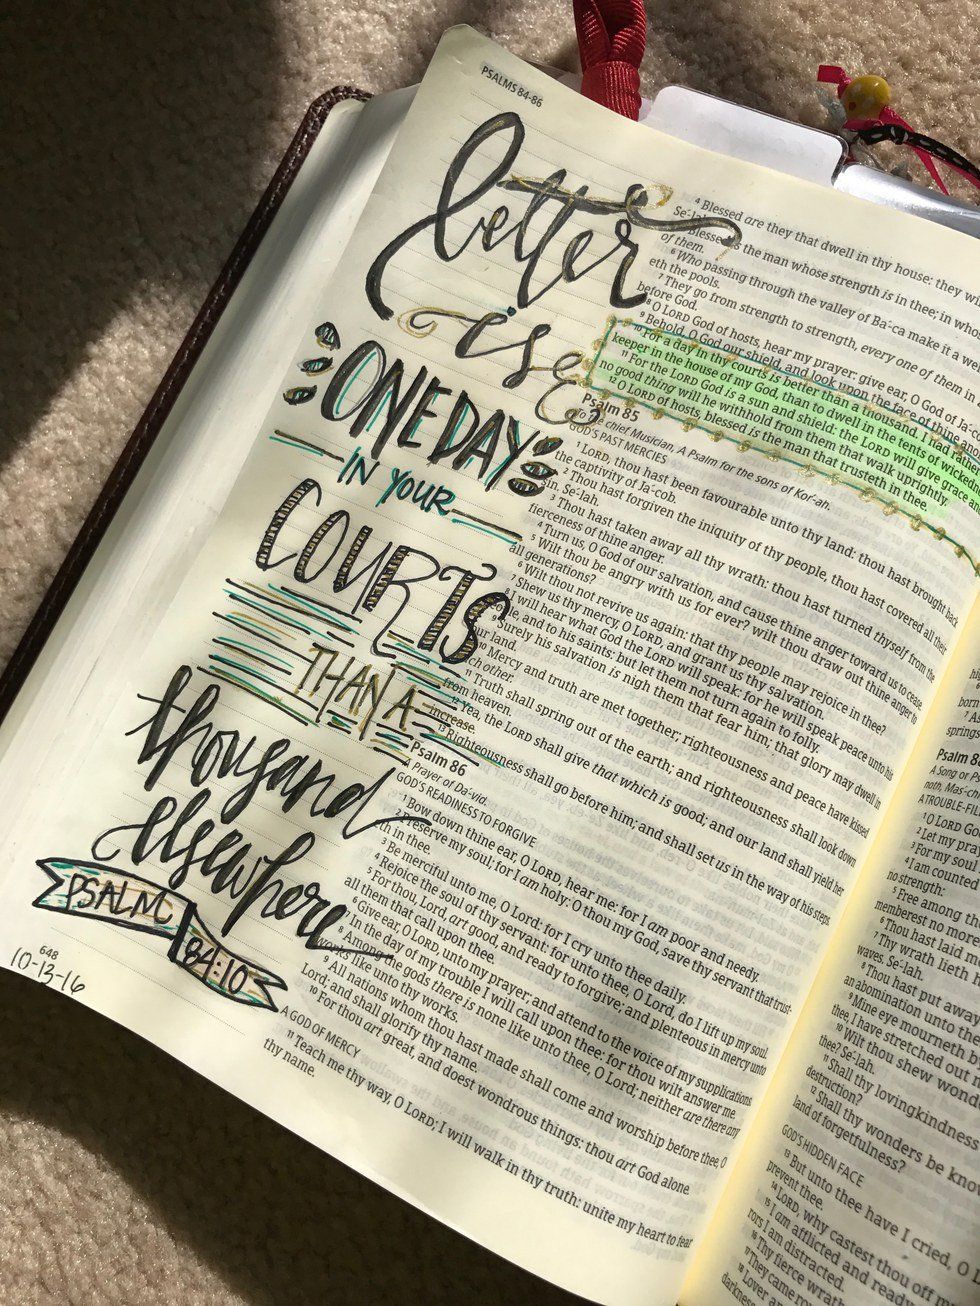 PSALMS 84-86
better
is
ONE DAY
IN YOUR
COURTS
THAN A
thousand
elsewhere
PSALM
84:10
648
10-13-16
4 Blessed are they that dwell in thy house: they
Se-lah.
Blessed is the man whose strength is in thee; in
of them.
6 Who passing through the valley of Ba-ca make it a
eth the pools.
7 They go from strength to strength, every one of them in
before God.
8 O LORD God of hosts, hear my prayer: give ear, O God of
9 Behold, O God our shield, and look upon the face of thine
10 For a day in thy courts is better than a thousand. I had
keeper in the house of my God, than to dwell in the tents of
11 For the LORD God is a sun and shield: the LORD will give grace
no good thing will he withhold from them that walk uprightly.
12 O LORD of hosts, blessed is the man that trusteth in thee.
Psalm 85
chief Musician, A Psalm for the sons of Kor-ah.
GOD'S PAST MERCIES
1 LORD, thou hast been favourable unto thy land: thou hast brought back
the captivity of Ja-cob.
2 Thou hast forgiven the iniquity of thy people, thou hast covered all their
sin. Se-lah.
3 Thou hast taken away all thy wrath: thou hast turned thyself from the
fierceness of thine anger.
4 Turn us, O God of our salvation, and cause thine anger toward us to cease.
5 Wilt thou be angry with us for ever? wilt thou draw out thine anger to
all generations?
6 Wilt thou not revive us again: that thy people may rejoice in thee?
7 Shew us thy mercy, O LORD, and grant us thy salvation.
8 I will hear what God the LORD will speak: for he will speak peace unto his
people, and to his saints: but let them not turn again to folly.
9 Surely his salvation is nigh them that fear him; that glory may dwell in
our land.
10 Mercy and truth are met together; righteousness and peace have kissed
each other.
11 Truth shall spring out of the earth; and righteousness shall look down
from heaven.
12 Yea, the LORD shall give that which is good; and our land shall yield her
increase.
13 Righteousness shall go before him; and shall set us in the way of his steps.
Psalm 86
A Prayer of Da-vid.
GOD'S READINESS TO FORGIVE
1 Bow down thine ear, O LORD, hear me: for I am poor and needy.
2 Preserve my soul; for I am holy: O thou my God, save thy servant that trust-
eth in thee.
3 Be merciful unto me, O Lord: for I cry unto thee daily.
4 Rejoice the soul of thy servant: for unto thee, O Lord, do I lift up my soul.
5 For thou, Lord, art good, and ready to forgive; and plenteous in mercy unto
all them that call upon thee.
6 Give ear, O LORD, unto my prayer; and attend to the voice of my supplications.
7 In the day of my trouble I will call upon thee: for thou wilt answer me.
8 Among the gods there is none like unto thee, O Lord; neither are there any
works like unto thy works.
9 All nations whom thou hast made shall come and worship before thee, O
Lord; and shall glorify thy name.
10 For thou art great, and doest wondrous things: thou art God alone.
A GOD OF MERCY
11 Teach me thy way, O LORD; I will walk in thy truth: unite my heart to fear
thy name.
born
springs
Psalm
A Song
noth, Mas-chil
A TROUBLE-
1 O LORD God
2 Let my pray
3 For my soul
4 I am counted
no strength:
5 Free among
memberest no more
6 Thou hast laid
7 Thy wrath lieth
waves. Se-lah.
8 Thou hast put away
an abomination unto
9 Mine eye mourneth
thee, I have stretched out
10 Wilt thou shew wonders
thee? Se-lah.
11 Shall thy lovingkindness
destruction?
12 Shall thy wonders be
land of forgetfulness?
GOD'S HIDDEN FACE
13 But unto thee have I cried, O
prevent thee.
14 LORD, why castest thou off my
15 I am afflicted and ready
rors I am distracted.
16 Thy fierce wrath
17 They came
18 Lover and
darkness